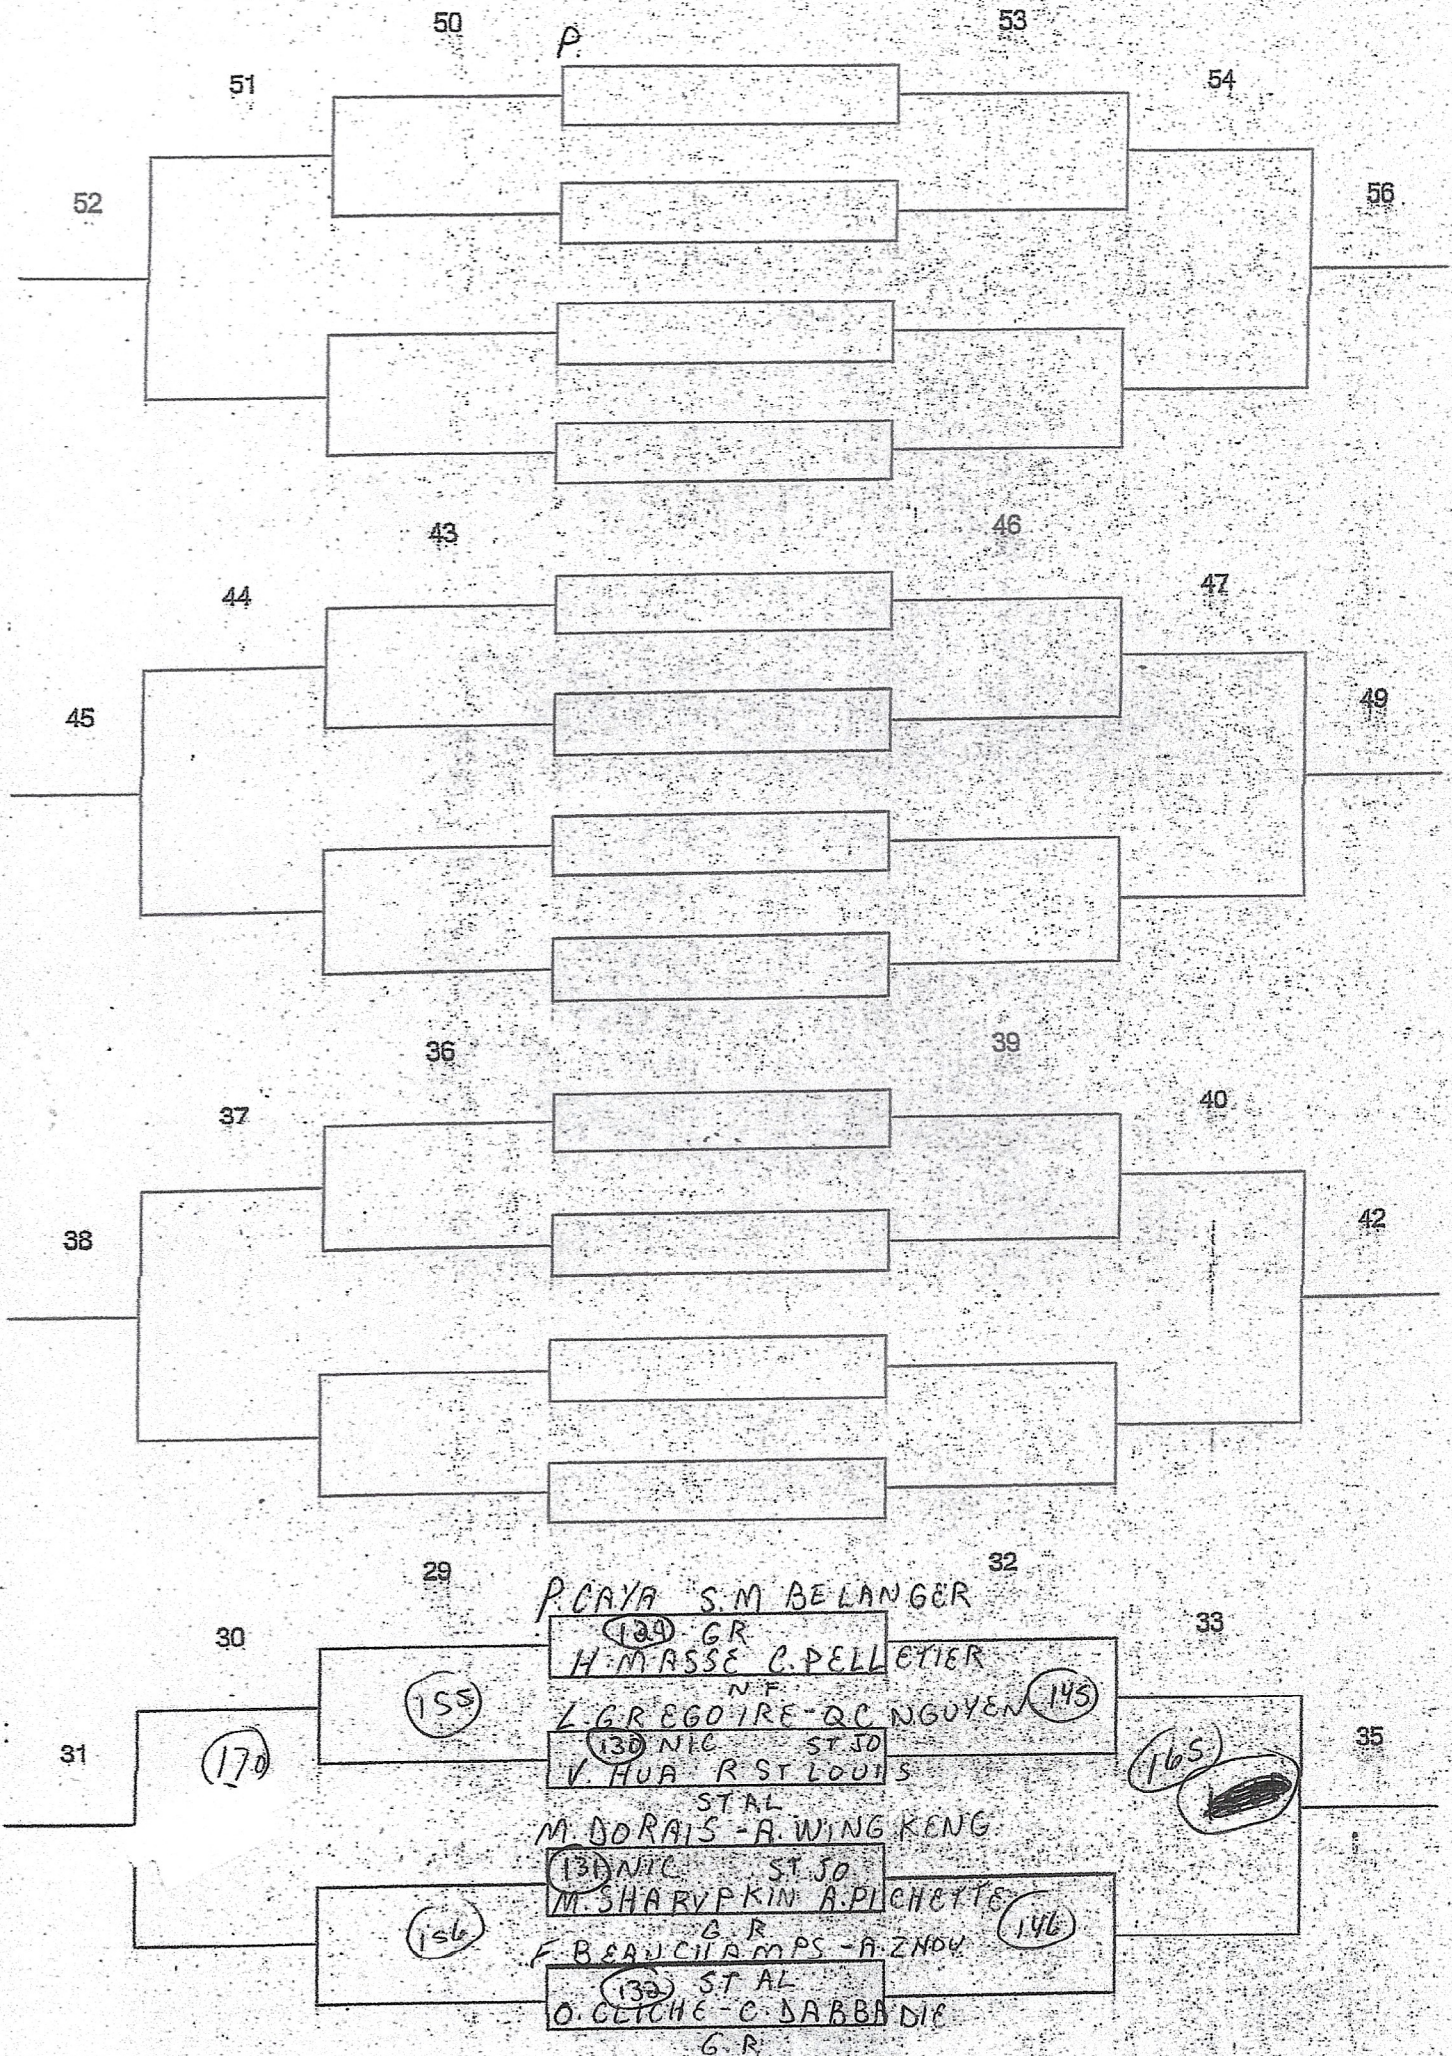 50
53
P.
51
54
52
56
43
46
44
47
45
49
36
39
37
40
38
42
29
32
P. CAYA S. M BELANGER
30
129 GR
33
H. MASSE C. PELLETIER
155
N F
145
L. GREGOIRE - QC NGUYEN
31
170
130 NIC ST JO
165
35
V. HUA R ST LOUIS
ST AL
M. DORAIS - A. WING KENG
131 NIC ST JO
M. SHARYPKIN A. PICHETTE
156
G R
146
F. BEAUCHAMPS - A. ZHOU
132 ST AL
O. CLICHE - C. DABBADIE
G. R